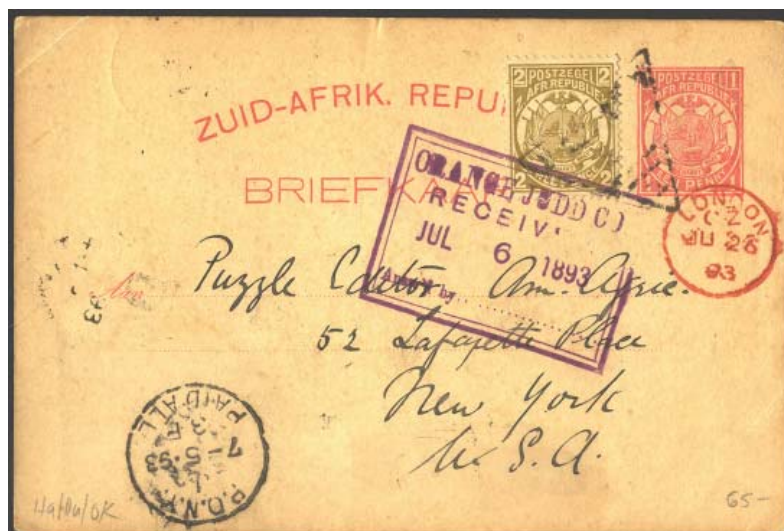 ZUID-AFRIK. REPU
BRIEFKAA
2 POSTZEGEL 2
AFR REPUBLIEK
2 2
POSTZEGEL 1
AFR REPUBLIEK
PENNY
ORANGE JUDD CO
RECEIV
JUL 6 1893
by
LONDON
CZ
JU 26
93
Aan Puzzle Editor Am. Agric.
52 Lafayette Place
New York
U. S. A.
93
PAID ALL
7
93
P.O.N.Y.
65-